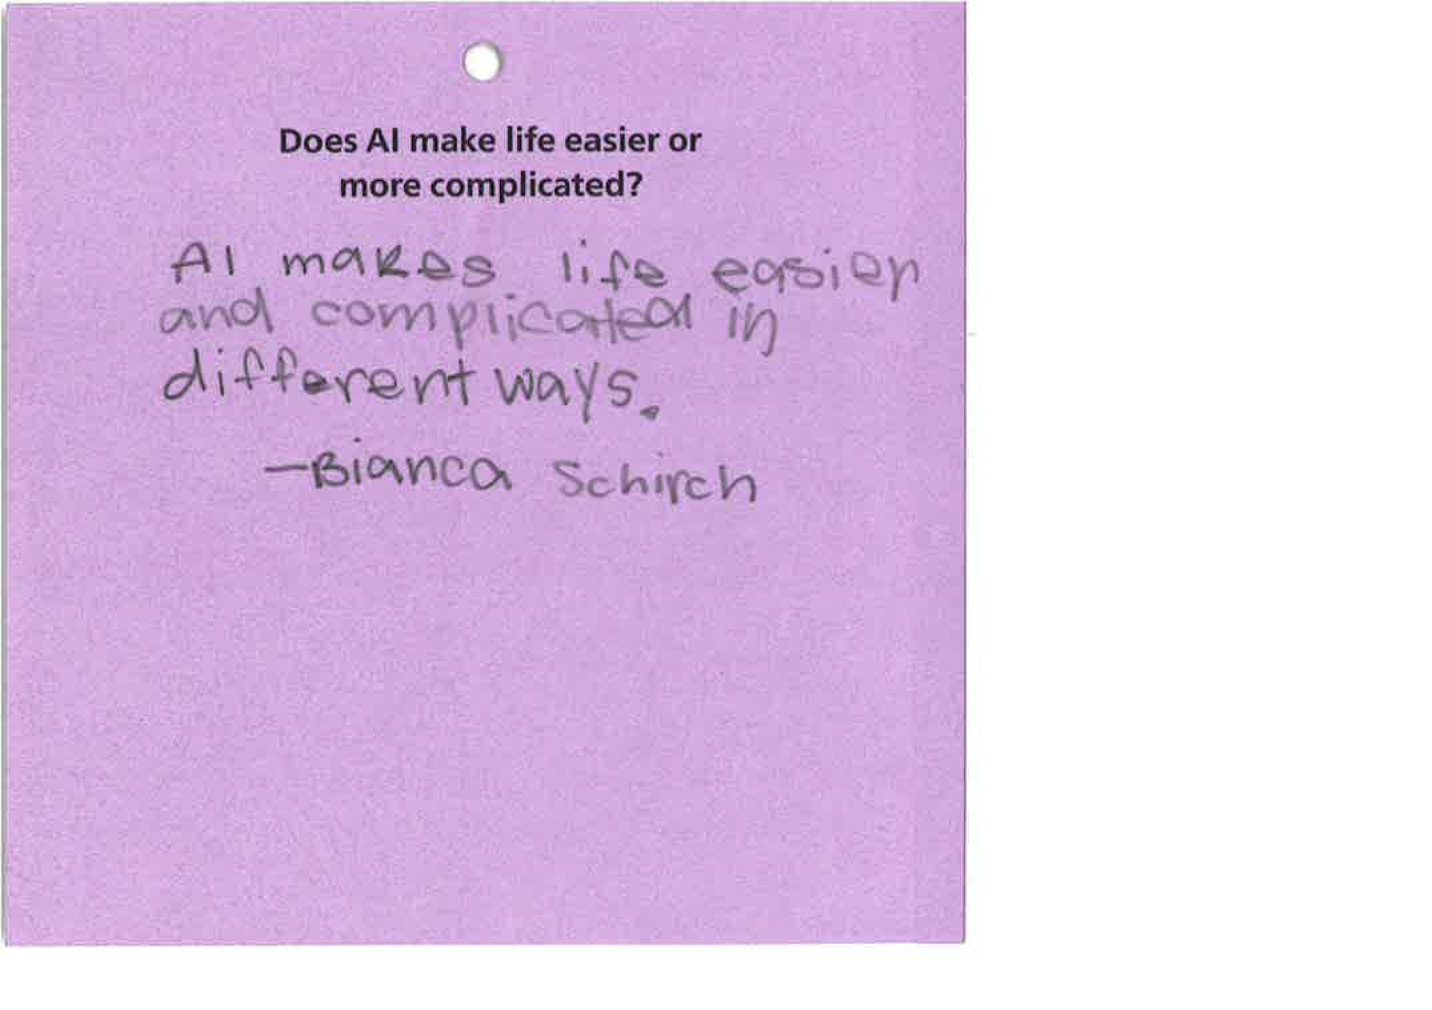 Does AI make life easier or
more complicated?
AI makes life easier
and complicated in
different ways.
-Bianca Schirch